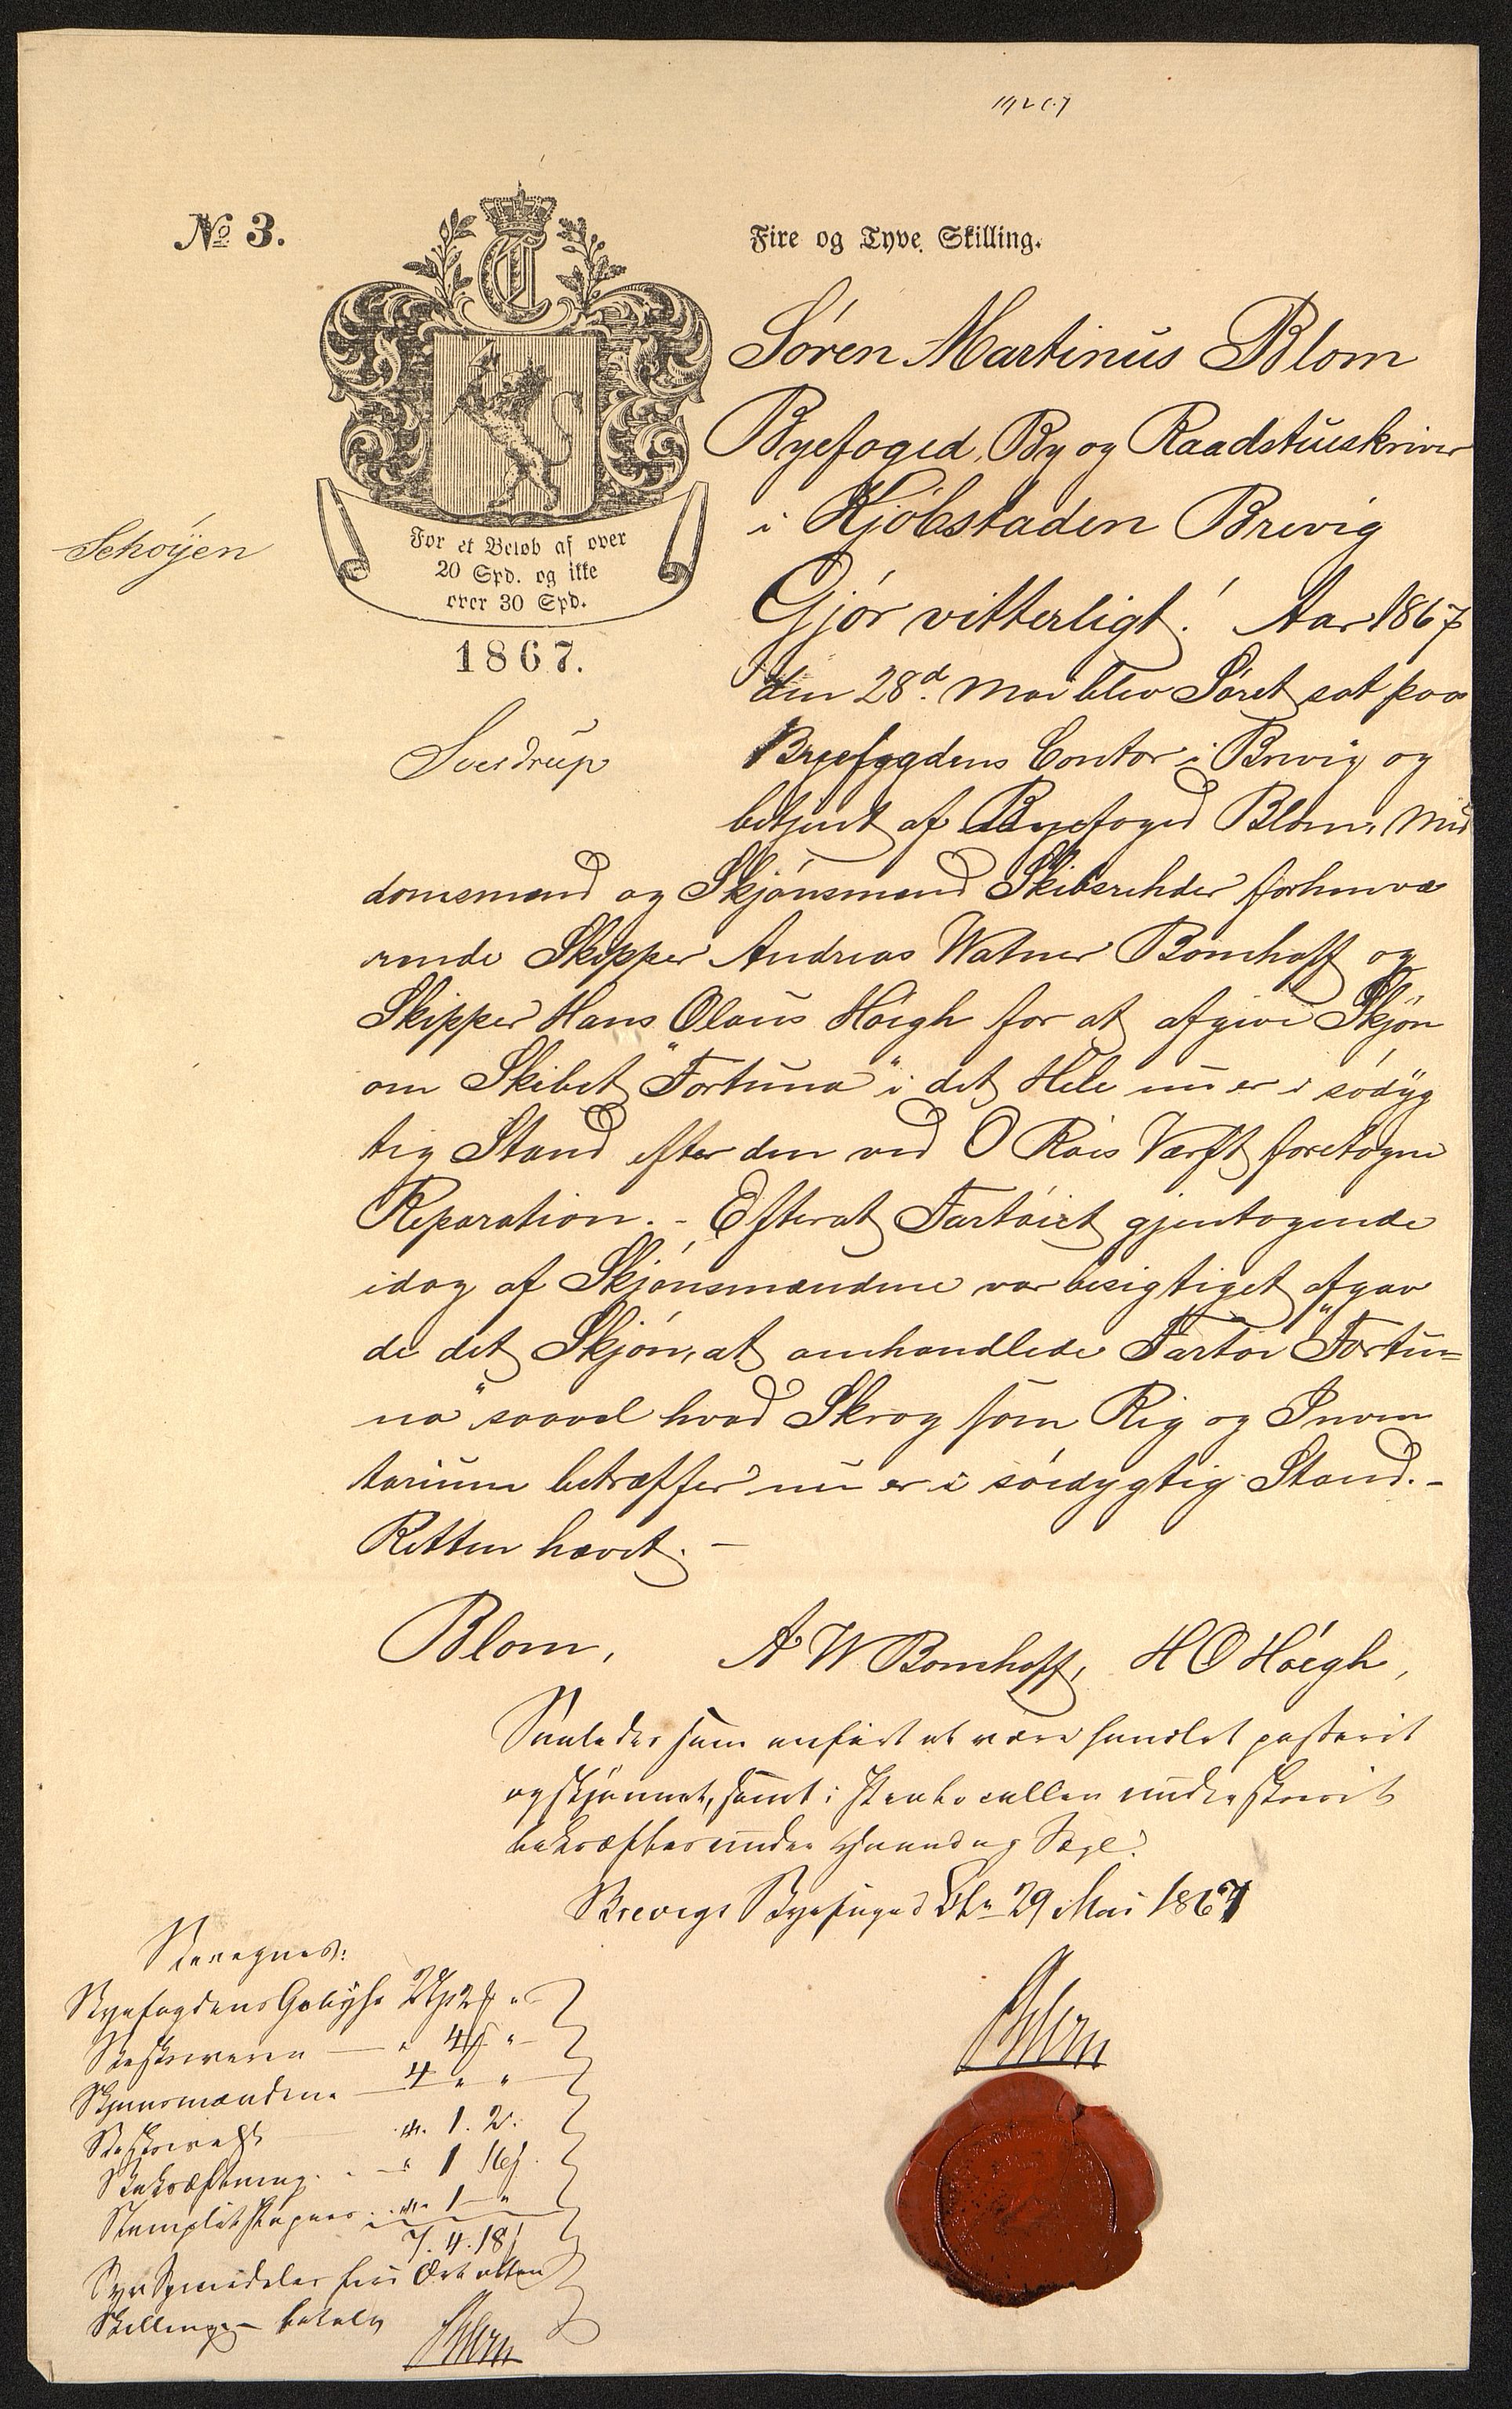 No 3.
Fire og Tyve Skilling.
For et Beløb af over
20 Spd. og ikke
over 30 Spd.
1867.
Schøyen
Sverdrup
Søren Martinus Blom
Byefoged, By og Raadstueskriver
i Kjøbstaden Brevig
Gjør vitterligt! Aar 1867
den 28d. Mai blev Søret sat paa
Byefogdens Contor i Brevig og
betjent af Byefoged Blom, Med
domsmænd og Skjønsmænd Skibsrehder forhenvæ
rende Skipper Andreas Watner Bomhoff og
Skipper Hans Olaus Høegh for at afgive Skjøn
om Skibet "Fortuna" i det Hele nu er i södyg
tig Stand efter den ved O Røis Værft foretagne
Reparation. - Efterat Fartøiet gjentagende
idag af Skjønsmændene var besigtiget afgav
de det Skjøn, at omhandlede Fartøi "Fortu=
na" saavel hvad Skrog som Rig og Inven
tarium betræffer nu er i søedygtig Stand. -
Retten hævet. -
Blom, A W Bomhoff, H O Høegh,
Saaledes som anført at være handlet passerit
og skjønnet, samt i Protocollen underskrevet
bekræftes under Haand og Segl.
Brevigs Byefoged Ctr 29 Mai 1867
Blom
Beregnes:
Byefogdens Gebyhr 2
Skriveren 4
Skjønsmændene 4 " "
1. 2.
Bekræftning 1
Stemplet Papir 1 "
7. 4. 18
Syv Speciedaler fire Ort atten
Skilling betalt
Blom